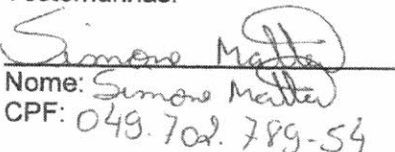 Testemunhas:
Simone Mattei
Nome: Simone Mattei
CPF: 049.702.789-54